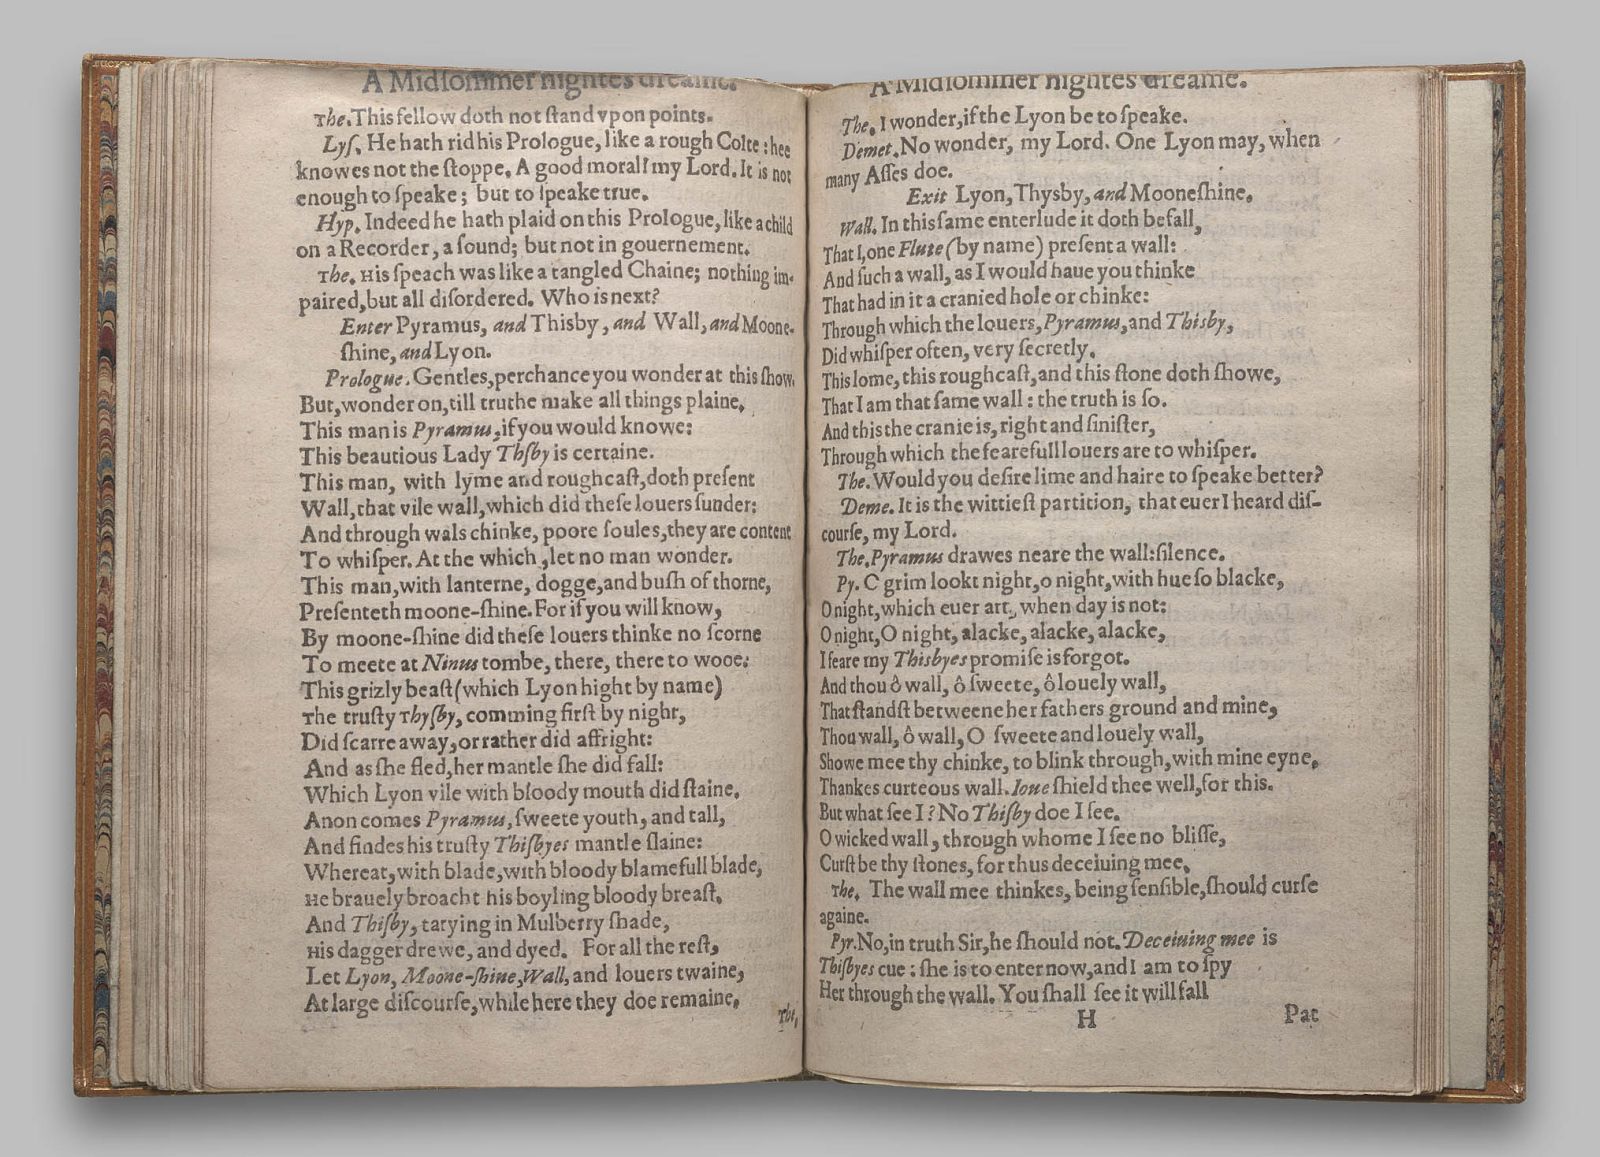 A Midsommer nightes dreame.
The. This fellow doth not ſtand vpon points.
Lyſ. He hath rid his Prologue, like a rough Colte: hee
knowes not the ſtoppe. A good morall my Lord. It is not
enough to ſpeake; but to ſpeake true.
Hyp. Indeed he hath plaid on this Prologue, like a child
on a Recorder, a ſound; but not in gouernement.
The. His ſpeach was like a tangled Chaine; nothing im-
paired, but all diſordered. Who is next?
Enter Pyramus, and Thisby, and Wall, and Moone-
ſhine, and Lyon.
Prologue. Gentles, perchance you wonder at this ſhow.
But, wonder on, till truthe make all things plaine.
This man is Pyramus, if you would knowe:
This beautious Lady Thſby is certaine.
This man, with lyme and roughcaſt, doth preſent
Wall, that vile wall, which did theſe louers ſunder:
And through wals chinke, poore ſoules, they are content
To whiſper. At the which, let no man wonder.
This man, with lanterne, dogge, and buſh of thorne,
Preſenteth moone-ſhine. For if you will know,
By moone-ſhine did theſe louers thinke no ſcorne
To meete at Ninus tombe, there, there to wooe:
This grizly beaſt (which Lyon hight by name)
The truſty Thyſby, comming firſt by night,
Did ſcarre away, or rather did affright:
And as ſhe fled, her mantle ſhe did fall:
Which Lyon vile with bloody mouth did ſtaine.
Anon comes Pyramus, ſweete youth, and tall,
And findes his truſty Thiſbyes mantle ſlaine:
Whereat, with blade, with bloody blamefull blade,
He brauely broacht his boyling bloody breaſt.
And Thiſby, tarying in Mulberry ſhade,
His dagger drewe, and dyed. For all the reſt,
Let Lyon, Moone-ſhine, Wall, and louers twaine,
At large diſcourſe, while here they doe remaine.
The.
A Midsommer nightes dreame.
The. I wonder, if the Lyon be to ſpeake.
Demet. No wonder, my Lord. One Lyon may, when
many Aſſes doe.
Exit Lyon, Thysby, and Mooneſhine.
Wall. In this ſame enterlude it doth befall,
That I, one Flute (by name) preſent a wall:
And ſuch a wall, as I would haue you thinke
That had in it a cranied hole or chinke:
Through which the louers, Pyramus, and Thisby,
Did whiſper often, very ſecretly.
This lome, this roughcaſt, and this ſtone doth ſhowe,
That I am that ſame wall: the truth is ſo.
And this the cranie is, right and ſiniſter,
Through which the fearefull louers are to whiſper.
The. Would you deſire lime and haire to ſpeake better?
Deme. It is the wittieſt partition, that euer I heard diſ-
courſe, my Lord.
The. Pyramus drawes neare the wall: ſilence.
Py. O grim lookt night, o night, with hue ſo blacke,
O night, which euer art, when day is not:
O night, O night, alacke, alacke, alacke,
I feare my Thisbyes promiſe is forgot.
And thou ô wall, ô ſweete, ô louely wall,
That ſtandſt betweene her fathers ground and mine,
Thou wall, ô wall, O ſweete and louely wall,
Showe mee thy chinke, to blink through, with mine eyne.
Thankes curteous wall. Ioue ſhield thee well, for this.
But what ſee I? No Thiſby doe I ſee.
O wicked wall, through whome I ſee no bliſſe,
Curſt be thy ſtones, for thus deceiuing mee.
The. The wall mee thinkes, being ſenſible, ſhould curſe
againe.
Pyr. No, in truth Sir, he ſhould not. Deceiuing mee is
Thiſbyes cue: ſhe is to enter now, and I am to ſpy
Her through the wall. You ſhall ſee it will fall
H
Pat